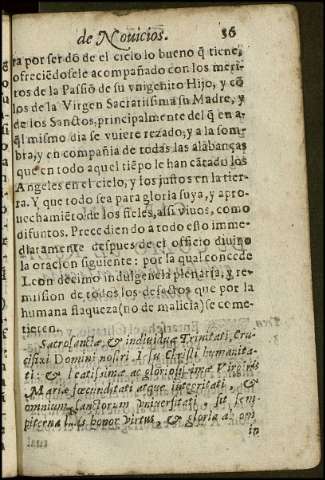 de Novicios. 36
ra por ser dõ de el cielo lo bueno q̃ tiene,
ofreciẽdosele acompañado con los meri-
tos de la Passiõ de su vnigenito Hijo, y cõ
los de la Virgen Sacratissima su Madre, y
de los Sanctos, principalmente del q̃ en a-
q̃l mismo dia se vuiere rezado, y a la som-
bra, y en compañia de todas las alabanças
que en todo aquel tiẽpo le han cãtado los
Angeles en el cielo, y los justos en la tier-
ra. Y que todo sea para gloria suya, y apro-
uechamiẽto de los fieles, assi viuos, como
difuntos. Precediendo a todo esto imme-
diatamente despues de el officio diuino
la oracion siguiente: por la qual concede
Leon decimo indulgencia plenaria, y re-
mission de todos los defectos que por la
humana flaqueza (no de malicia) se come-
tieren.
Sacrosanctæ, & indiuiduæ Trinitati, Cru-
cifixi Domini nostri Iesu Christi humanita-
ti: & beatissimæ ac gloriosissimæ Virginis
Mariæ fœcunditati atque integritati, &
omnium sanctorum vniuersitati, sit sem-
piterna laus honor virtus, & gloria ab omni